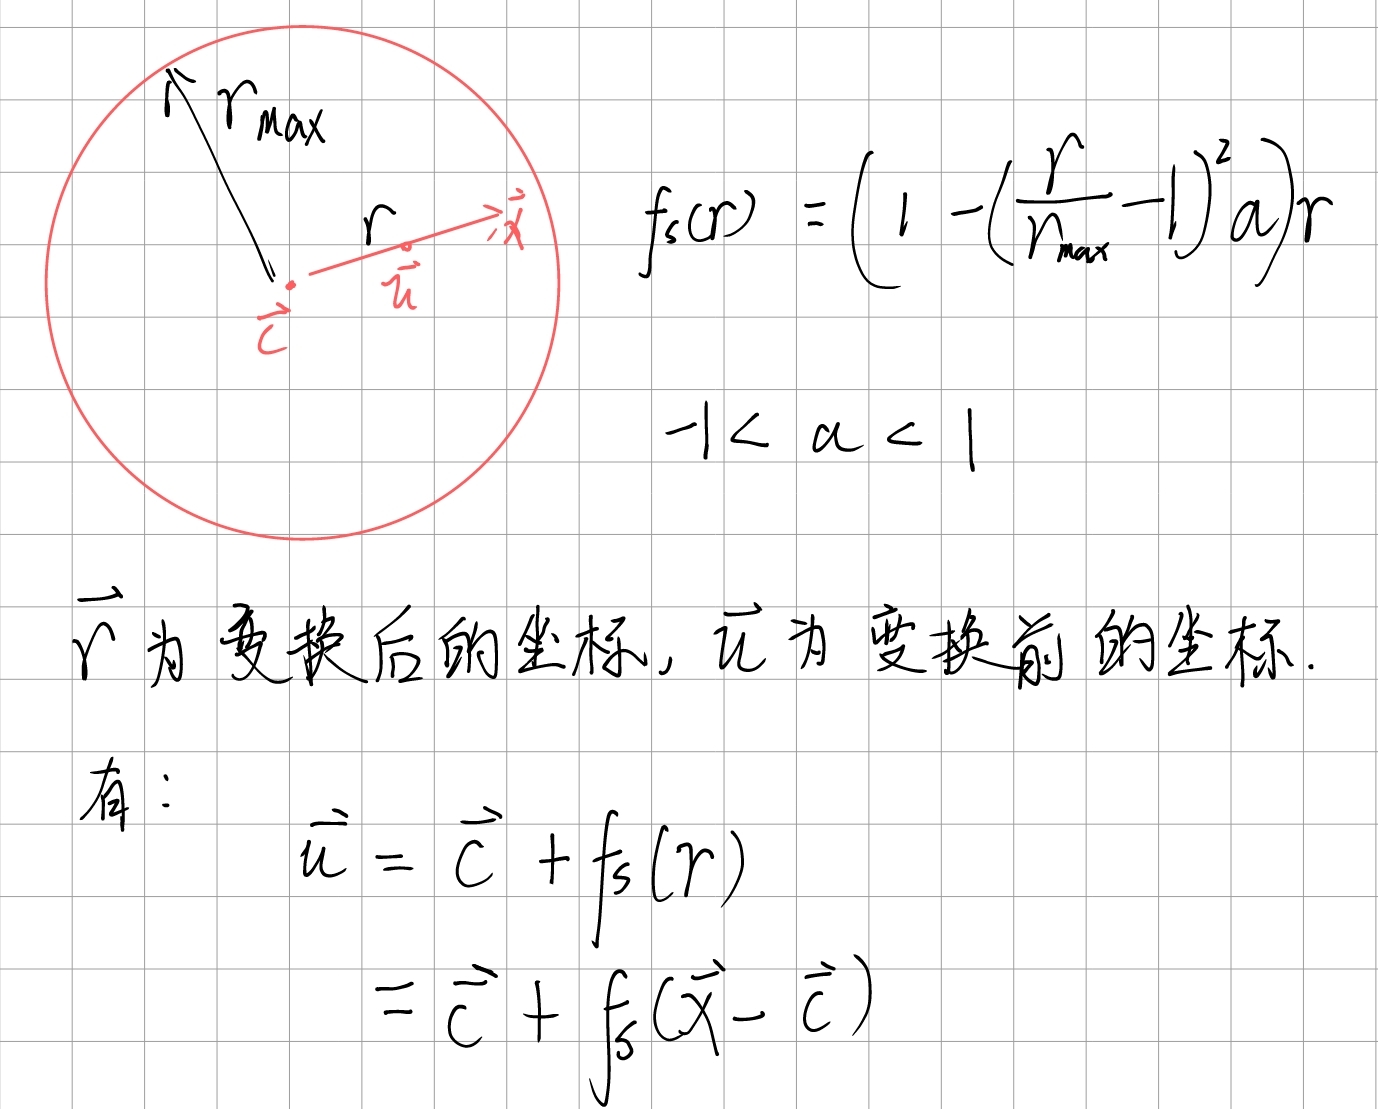 r_max
r
x⃗
u⃗
c⃗
fₛ(r) = (1 - (r/r_max - 1)² a) r
-1 < a < 1
r⃗ 为变换后的坐标, u⃗ 为变换前的坐标.
有:
u⃗ = c⃗ + fₛ(r)
= c⃗ + fₛ(x⃗ - c⃗)